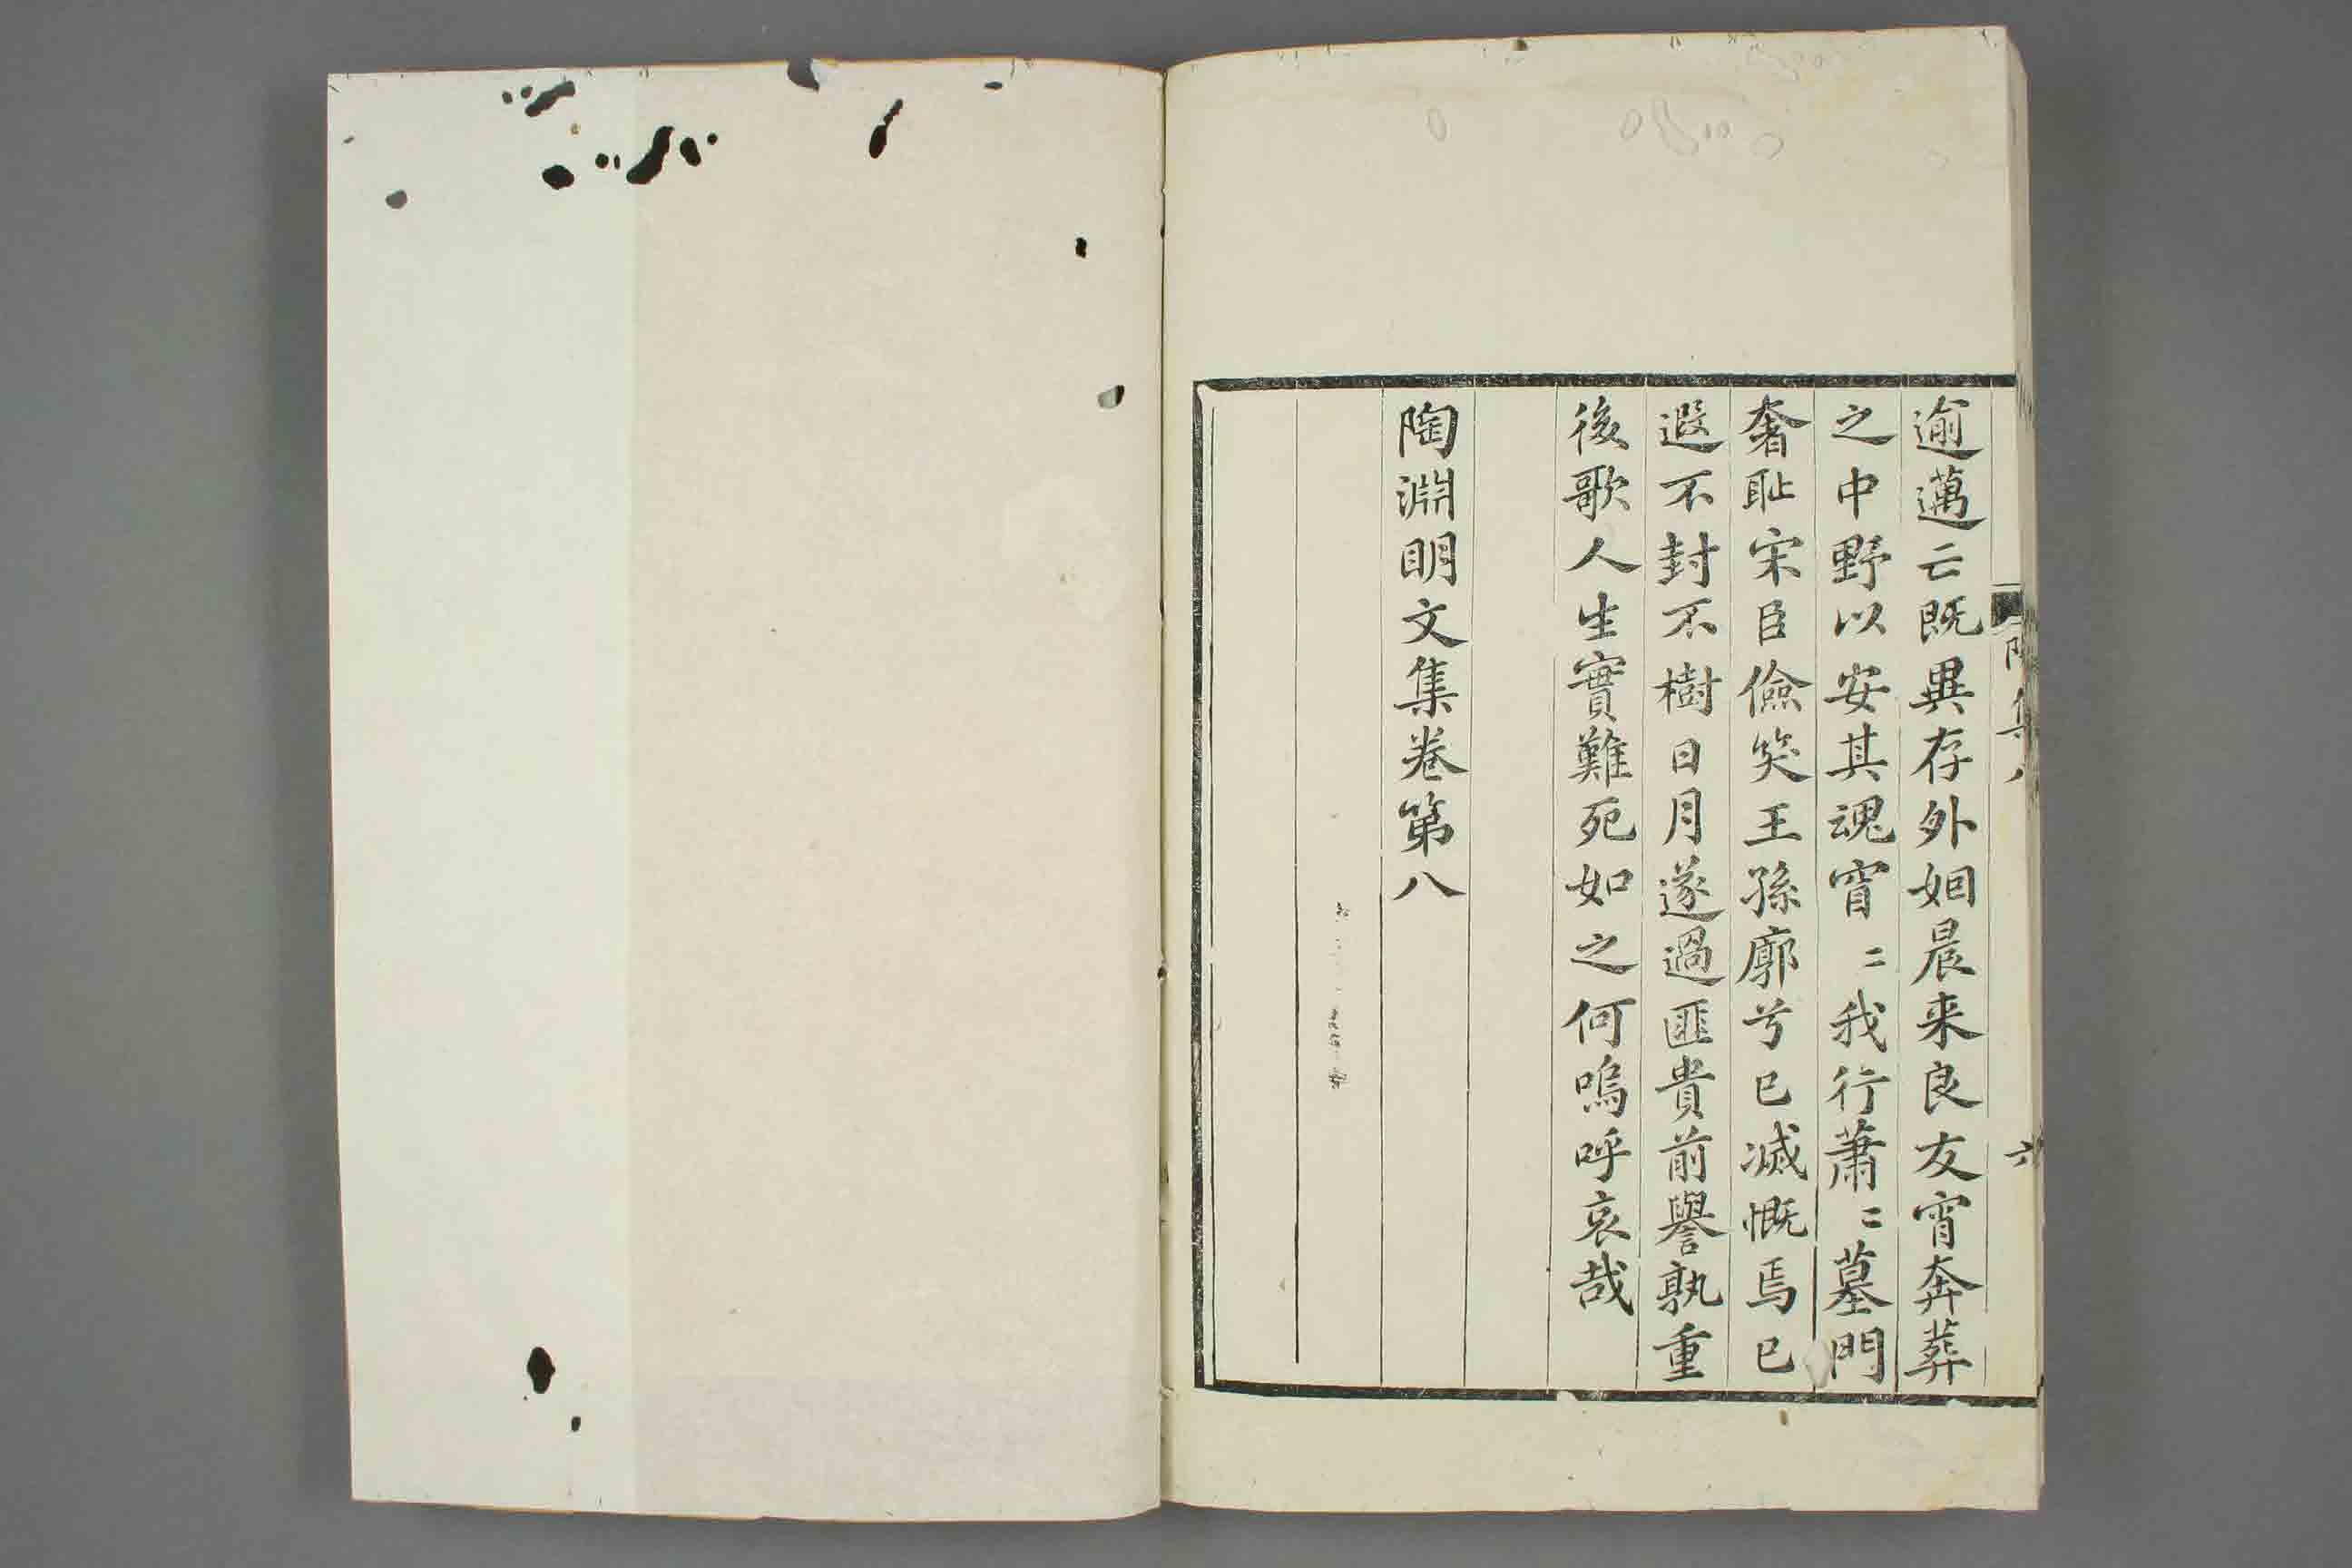 逾邁亡既異存外姻晨来良友宵奔葬
之中野以安其魂窅〻我行蕭〻墓門
奢耻宋臣儉笑王孫廓兮已滅慨焉已
遐不封不樹日月遂過匪貴前譽孰重
後歌人生實難死如之何嗚呼哀哉
陶淵明文集卷第八
集
六